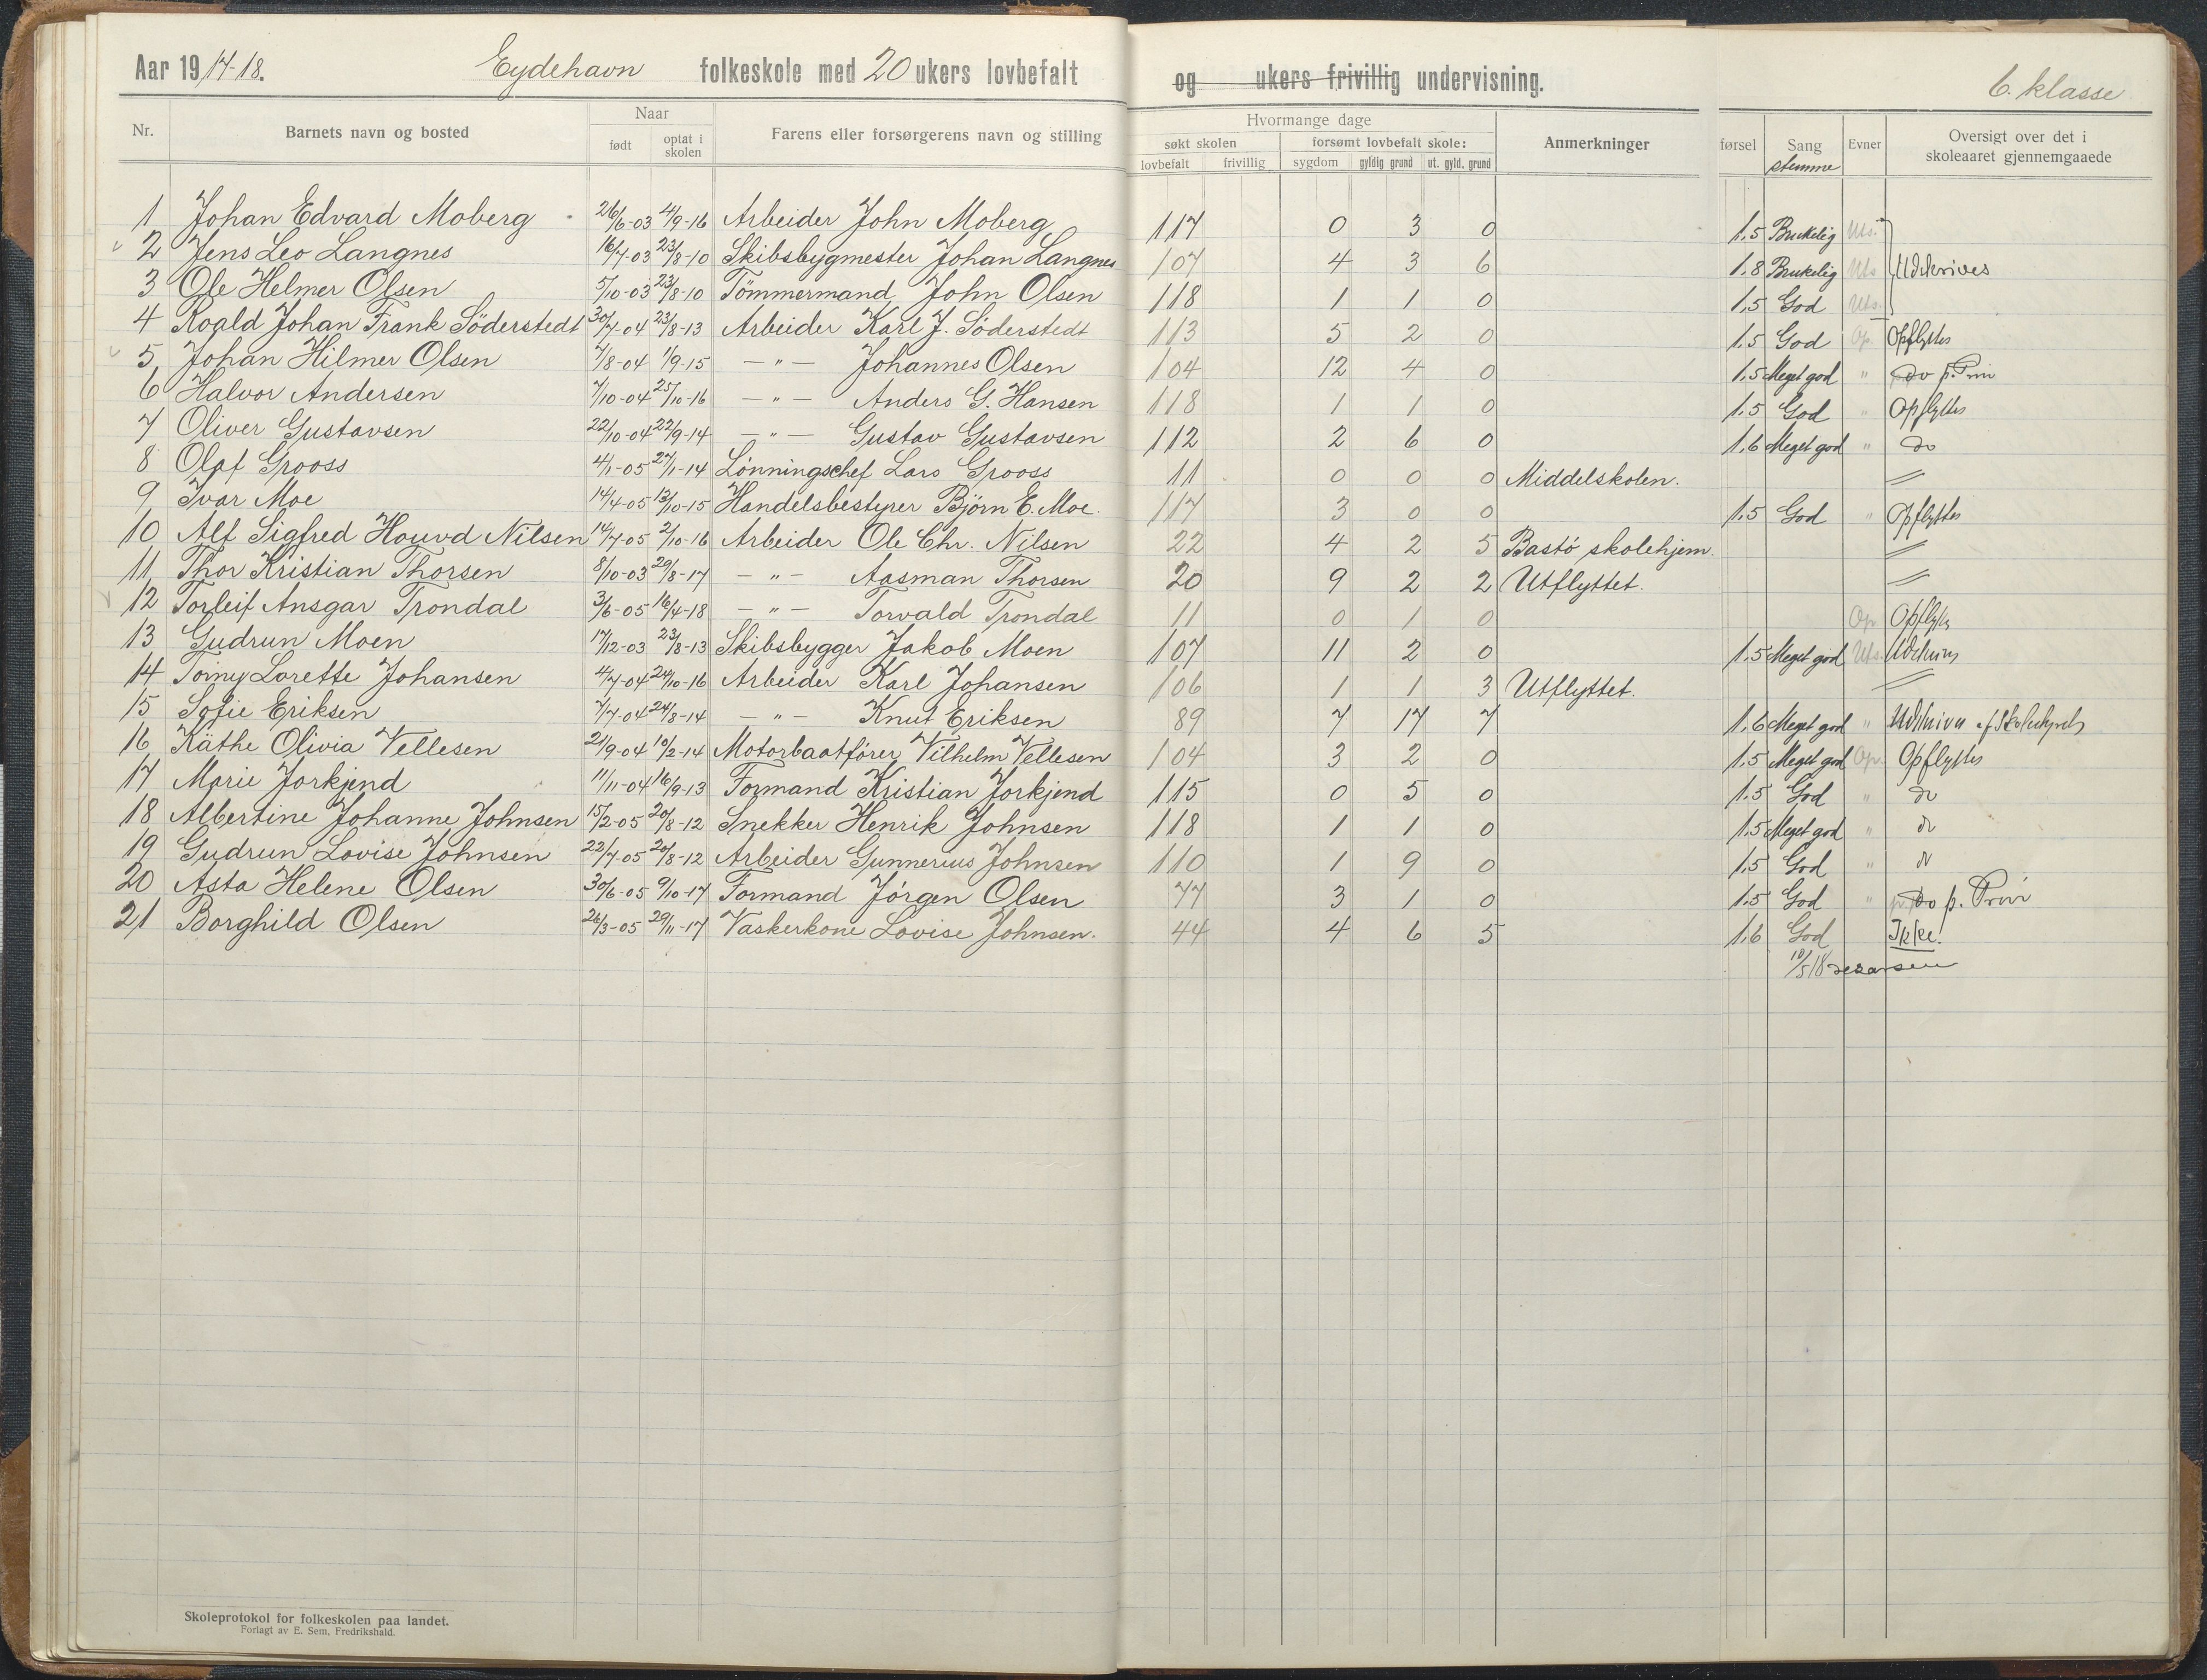 Aar 1917-18. Eydehavn folkeskole med 20 ukers lovbefalt og ukers frivillig undervisning. 6. klasse
Nr. Barnets navn og bosted Naar født optat i skolen Farens eller forsørgerens navn og stilling Hvormange dage søkt skolen lovbefalt frivillig forsømt lovbefalt skole: sygdom gyldig grund ut. gyld. grund Anmerkninger førsel Sang stemme Evner Oversigt over det i skoleaaret gjennemgaaede
1 Johan Edvard Moberg 26/6-03 4/9-16 Arbeider John Moberg 117 0 3 0 1.5 Brukelig Uts.
2 Jens Leo Langnes 16/7-03 23/8-10 Skibsbygmester Johan Langnes 107 4 3 6 1.8 Brukelig Uts Udskrives
3 Ole Helmer Olsen 5/10-03 23/8-10 Tömmermand John Olsen 118 1 1 0 1.5 God Uts.
4 Roald Johan Frank Söderstedt 30/7-04 23/8-13 Arbeider Karl J. Söderstedt 113 5 2 0 1.5 God Op. Opflyttes
5 Johan Hilmer Olsen 7/8-04 1/9-15 — " — Johannes Olsen 104 12 4 0 1.5 Meget god " do p. Prøv
6 Halvor Andersen 7/10-04 25/10-16 — " — Anders G. Hansen 118 1 1 0 1.5 God " Opflyttes
7 Oliver Gustavsen 22/10-04 22/9-14 — " — Gustav Gustavsen 112 2 6 0 1.6 Meget god " do
8 Olaf Grooss 4/1-05 27/1-14 Lønningschef Lars Grooss 11 0 0 0 Middelskolen. =
9 Ivar Moe 14/4-05 13/10-15 Handelsbestyrer Björn E. Moe. 117 3 0 0 1.5 God " Opflyttes
10 Alf Sigfred Houvd Nilsen 14/7-05 2/10-16 Arbeider Ole Chr. Nilsen 22 4 2 5 Bastö skolehjem. =
11 Thor Kristian Thorsen 8/10-03 29/8-17 — " — Aasman Thorsen 20 9 2 2 Utflyttet. =
12 Torleif Ansgar Trondal 3/6-05 16/4-18 — " — Torvald Trondal 11 0 1 0 Op. Opflytt
13 Gudrun Moen 17/12-03 23/8-13 Skibsbygger Jakob Moen 107 11 2 0 1.5 Meget god Uts. Udskrives
14 Toiny Lorette Johansen 4/7-04 24/10-16 Arbeider Karl Johansen 106 1 1 3 Utflyttet. =
15 Sofie Eriksen 7/7-04 24/8-14 — " — Knut Eriksen 89 7 17 7 1.6 Meget god " Udskrives af Skolestyret
16 Käthe Olivia Vellesen 21/9-04 10/2-14 Motorbaatfører Vilhelm Vellesen 104 3 2 0 1.5 Meget god Op. Opflyttes
17 Marie Jorkjend 11/11-04 16/9-13 Formand Kristian Jorkjend 115 0 5 0 1.5 God " do
18 Albertine Johanne Johnsen 15/2-05 20/8-12 Snekker Henrik Johnsen 118 1 1 0 1.5 Meget god " do
19 Gudrun Lovise Johnsen 22/7-05 20/8-12 Arbeider Gunnerius Johnsen 110 1 9 0 1.5 God " do
20 Asta Helene Olsen 30/6-05 9/10-17 Formand Jörgen Olsen 77 3 1 0 1.5 God " do p. Prøv
21 Borghild Olsen 26/3-05 29/11-17 Vaskerkone Lovise Johnsen. 44 4 6 5 1.6 God Ikke!
10/5 18
Skoleprotokol for folkeskolen paa landet.
Forlagt av E. Sem, Fredrikshald.